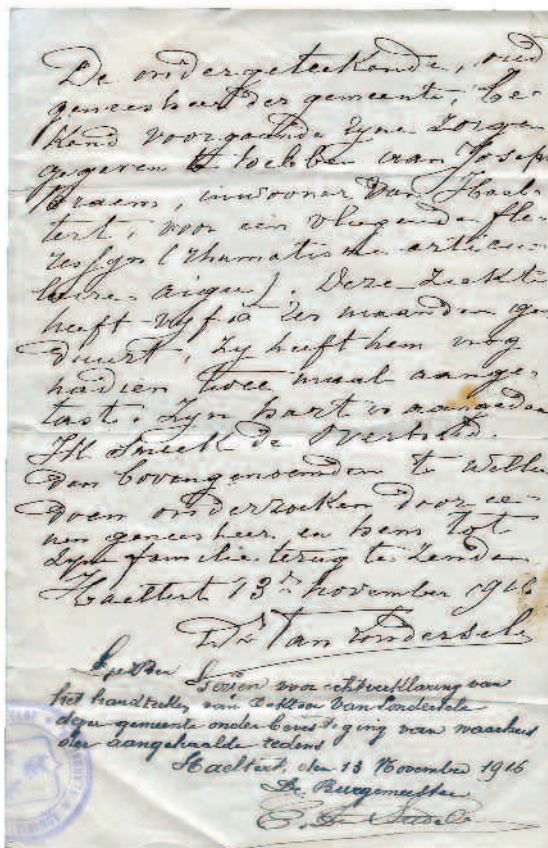 De ondergeteekende, oud
geneesheer der gemeente, be-
kend voorgaande zyne zorgen
gegeven te hebben aan Joseph
Braem, inwooner van Hael-
tert, voor een vliegende fle-
resyn (rhumatisme articu-
laire aigue). Deze ziekte
heeft vyf à zes maanden ge
duurt, zy heeft hem nog
nadien twee maal aange-
tast. Zyn hart is aangedaan
Ik smeek de Overheid
den bovengenoemden te willen
doen onderzoeken door ee-
nen geneesheer en hem tot
zyn familie terug te zenden
Haeltert 13n november 1916
Dr Van Londersele
Gezien voor echtverklaring van
het handteeken van Doktoor Van Londersele
dezer gemeente onder bevestiging van waarheid
der aangehaalde redens
Haeltert, den 13 November 1916
De Burgemeester